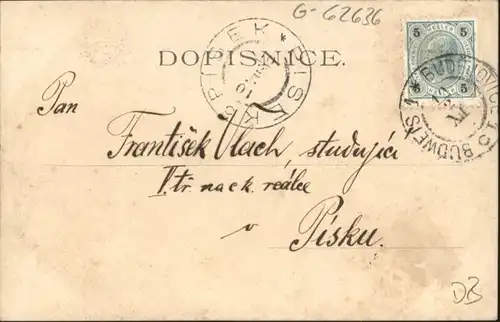 G-62636
DOPISNICE.
PISEK * PISEK
5 5
5 5
BUDWEIS 1 BUDĚJOVICE
Pan
František Vlach, studující
V. tř. na c.k. reálce
v Písku.
DB